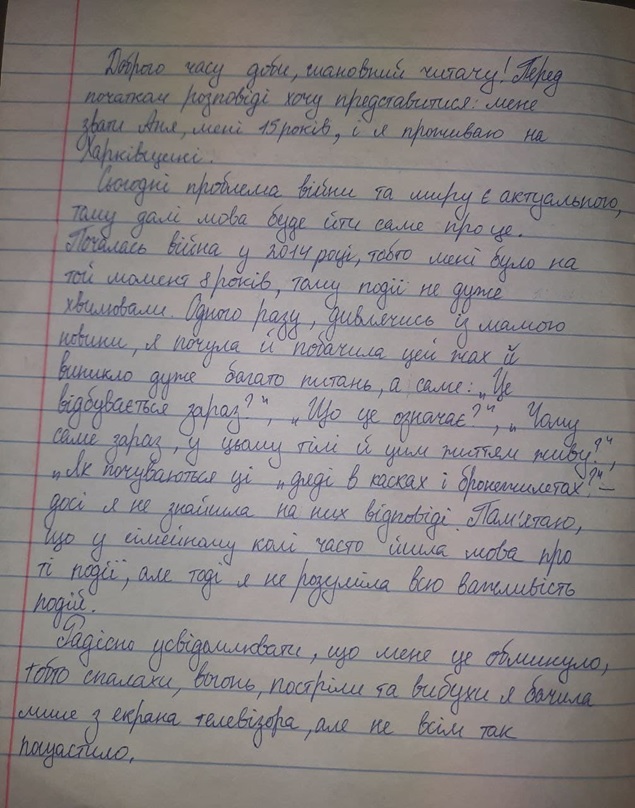 Доброго часу доби, шановний читачу! Перед
початком розповіді хочу представитися: мене
звати Аня, мені 15 років, і я проживаю на
Харківщині.
Сьогодні проблема війни та миру є актуального,
тому далі мова буде йти саме про це.
Почалась війна у 2014 році, тобто мені було на
той момент 8 років, тому події не дуже
хвилювали. Одного разу, дивлячись із мамою
новини, я почула й побачила цей жах й
виникло дуже багато питань, а саме: „Це
відбувається зараз?“, „Що це означає?“, „Чому
саме зараз, у цьому тілі й цим життям живу?“,
„Як почуваються ці „дяді в касках і бронежилетах?“ –
досі я не знайшла на них відповіді. Пам'ятаю,
що у сімейному колі часто йшла мова про
ті події, але тоді я не розуміла всю важливість
подій.
Радісно усвідомлювати, що мене це обминуло,
тобто спалахи, вогонь, постріли та вибухи я бачила
лише з екрана телевізора, але не всім так
пощастило.